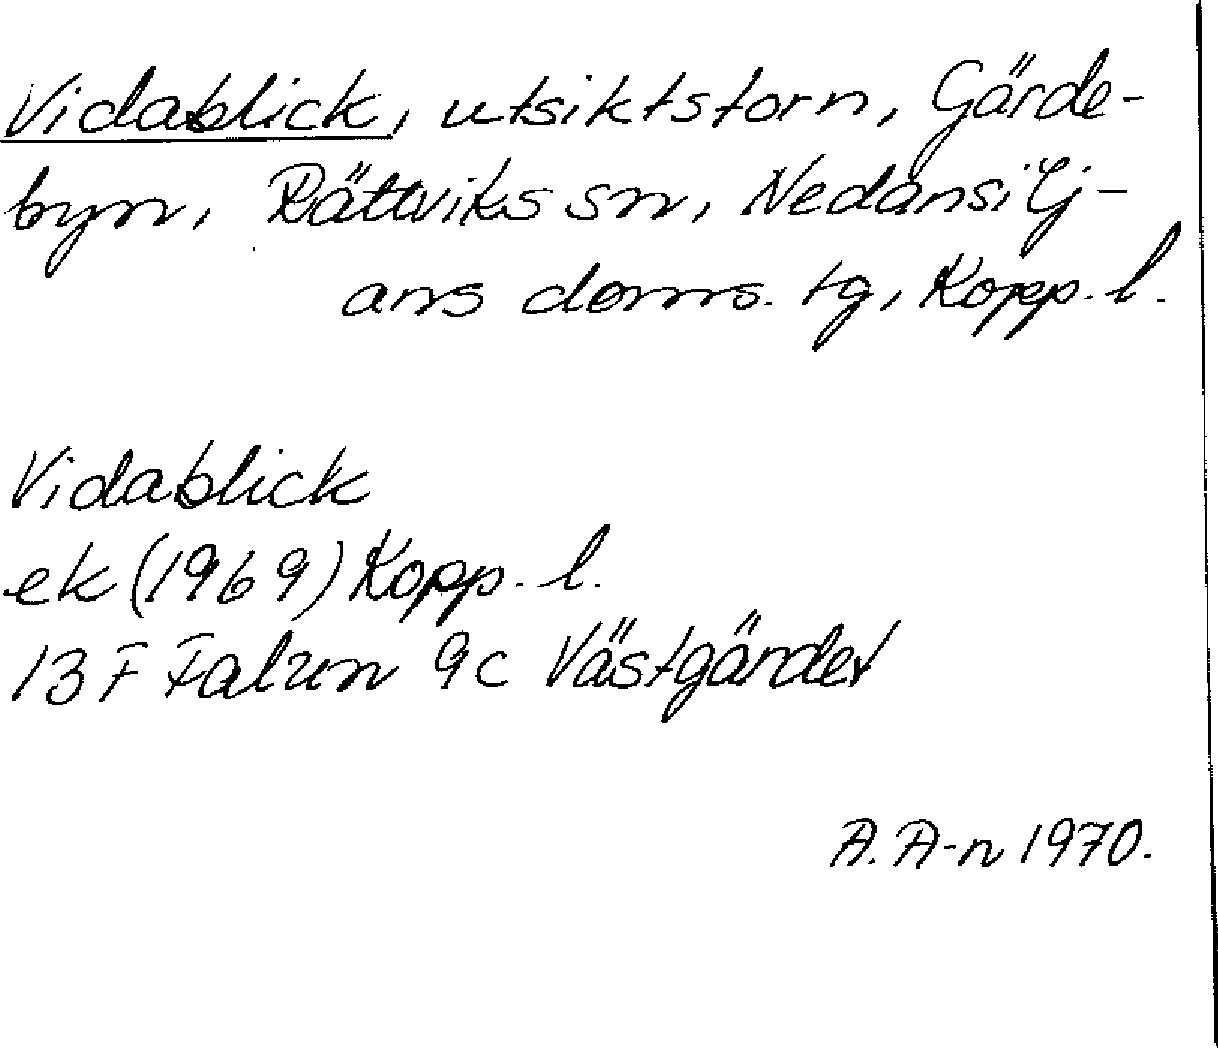 Vidablick, utsiktstorn, Gärde-
byn, Rättviks sn, Nedansilj-
ans doms. tg, Kopp. l.
Vidablick
ek (1969) Kopp. l.
13 F Falun 9c Västgärdet
A. A-n 1970.